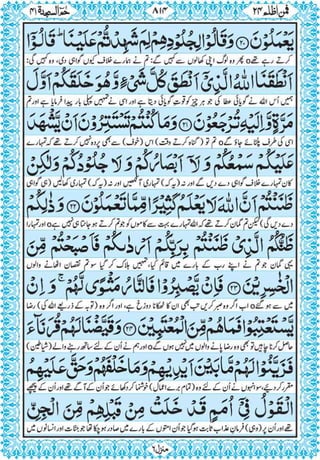 فمن اظلم ۲۴ ۸۱۴ حٰمٓ السجدة ۴۱
يَعْمَلُوْنَ ﴿۲۰﴾ وَقَالُوْا لِجُلُوْدِهِمْ لِمَ شَهِدْتُّمْ عَلَيْنَا ؕ قَالُوْۤا
کرتے رہے تھے o پھر وہ لوگ اپنی کھالوں سے کہیں گے: تم نے ہمارے خلاف کیوں گواہی دی، وہ کہیں گی: ہمیں
اَنْطَقَنَا اللّٰهُ الَّذِيْۤ اَنْطَقَ كُلَّ شَيْءٍ وَّهُوَ خَلَقَكُمْ اَوَّلَ
اُس اللہ نے گویائی عطا کی جو ہر چیز کو قوتِ گویائی دیتا ہے اور اسی نے تمہیں پہلی بار پیدا فرمایا ہے اور تم
مَرَّةٍ وَّاِلَيْهِ تُرْجَعُوْنَ ﴿۲۱﴾ وَمَا كُنْتُمْ تَسْتَتِرُوْنَ اَنْ يَّشْهَدَ
اسی کی طرف پلٹائے جاؤ گے o تم تو (گناہ کرتے وقت) اس (خوف) سے بھی پردہ نہیں کرتے تھے کہ تمہارے
عَلَيْكُمْ سَمْعُكُمْ وَلَاۤ اَبْصَارُكُمْ وَلَا جُلُوْدُكُمْ وَلٰكِنْ
کان تمہارے خلاف گواہی دے دیں گے اور نہ (یہ کہ) تمہاری آنکھیں اور نہ (یہ کہ) تمہاری کھالیں (ہی گواہی
ظَنَنْتُمْ اَنَّ اللّٰهَ لَا يَعْلَمُ كَثِيْرًا مِّمَّا تَعْمَلُوْنَ ﴿۲۲﴾ وَذٰلِكُمْ
دے دیں گی) لیکن تم گمان کرتے تھے کہ اللہ تمہارے بہت سے کاموں کو جو تم کرتے ہو جانتا ہی نہیں ہے o اور تمہارے
ظَنُّكُمُ الَّذِيْ ظَنَنْتُمْ بِرَبِّكُمْ اَرْدٰىكُمْ فَاَصْبَحْتُمْ مِّنَ
اسی گمان نے جو تم نے اپنے رب کے بارے میں قائم کیا، تمہیں ہلاک کر گیا سو تم نقصان اٹھانے والوں
الْخٰسِرِيْنَ ﴿۲۳﴾ فَاِنْ يَّصْبِرُوْا فَالنَّارُ مَثْوًى لَّهُمْ ۚ وَاِنْ
میں سے ہو گئے o اب اگر وہ صبر کریں تب بھی ان کا ٹھکانا دوزخ ہے، اور اگر وہ (توبہ کے ذریعے اللہ کی) رضا
يَّسْتَعْتِبُوْا فَمَا هُمْ مِّنَ الْمُعْتَبِيْنَ ﴿۲۴﴾ وَقَيَّضْنَا لَهُمْ قُرَنَآءَ
حاصل کرنا چاہیں تو بھی وہ رضا پانے والوں میں نہیں ہوں گے o اور ہم نے اُن کے لئے ساتھ رہنے والے (شیاطین)
فَزَيَّنُوْا لَهُمْ مَّا بَيْنَ اَيْدِيْهِمْ وَمَا خَلْفَهُمْ وَحَقَّ عَلَيْهِمُ
مقرر کر دیئے، سو انہوں نے اُن کے لئے وہ (تمام برے اعمال) خوش نما کر دکھائے جو اُن کے آگے تھے اور اُن کے پیچھے
الْقَوْلُ فِيْۤ اُمَمٍ قَدْ خَلَتْ مِنْ قَبْلِهِمْ مِّنَ الْجِنِّ
تھے اور اُن پر (وہی) فرمانِ عذاب ثابت ہو گیا جو اُن امتوں کے بارے میں صادر ہو چکا تھا جو جنات اور انسانوں میں
منزل ۶